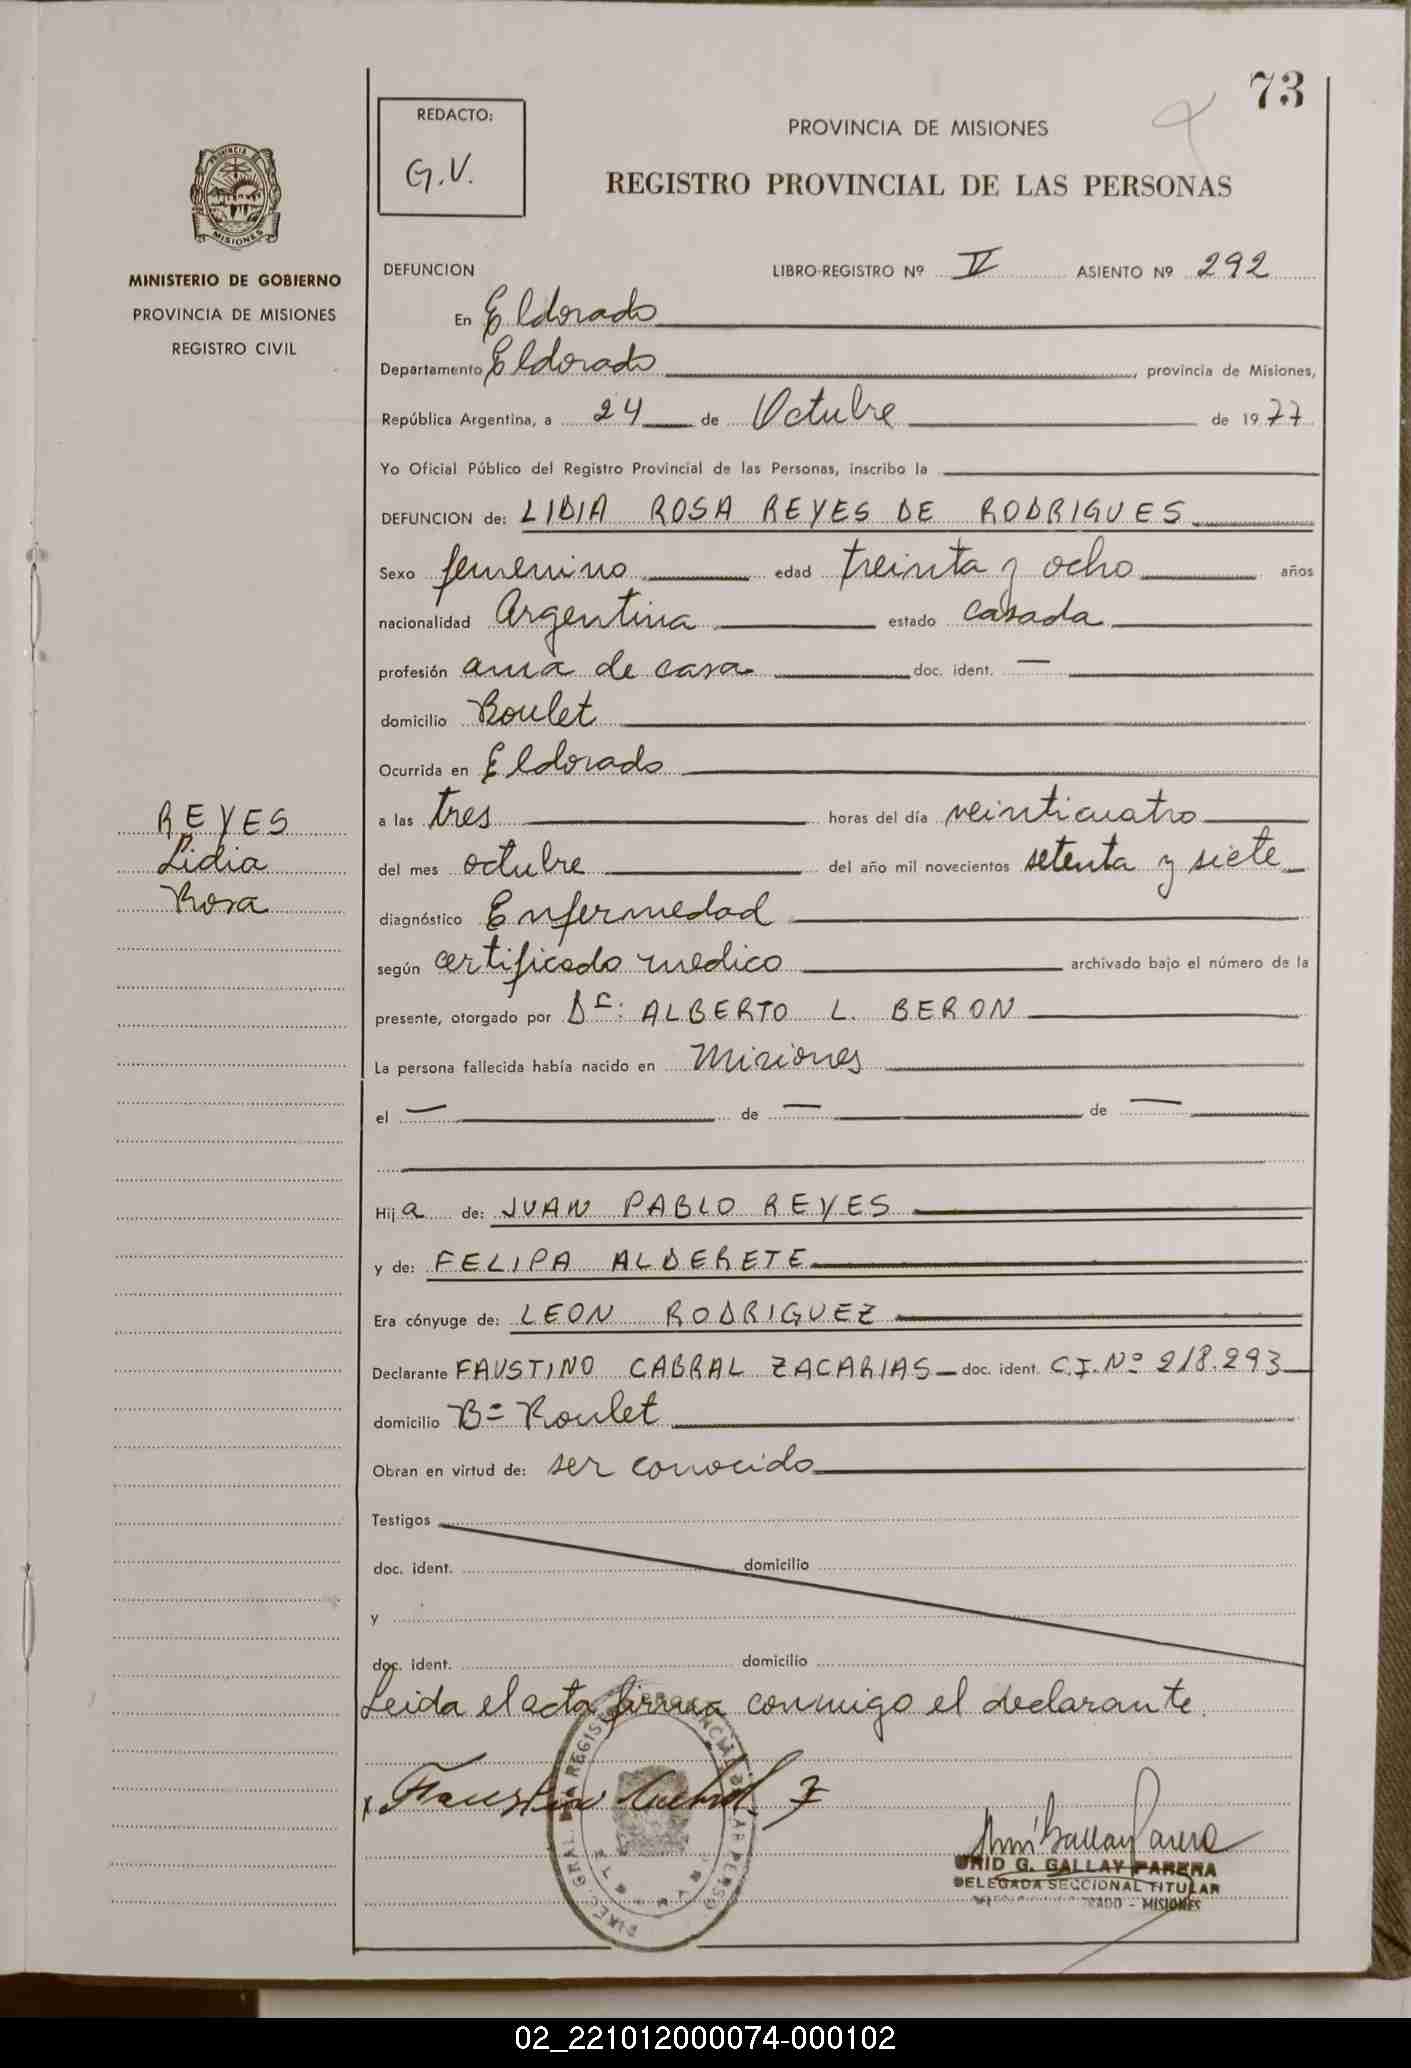 73
REDACTO:
G.V.
PROVINCIA DE MISIONES
REGISTRO PROVINCIAL DE LAS PERSONAS
MISIONES
MINISTERIO DE GOBIERNO
PROVINCIA DE MISIONES
REGISTRO CIVIL
DEFUNCION LIBRO-REGISTRO Nº V ASIENTO Nº 292
En Eldorado
Departamento Eldorado, provincia de Misiones,
República Argentina, a 24 de Octubre de 1977
Yo Oficial Público del Registro Provincial de las Personas, inscribo la
DEFUNCION de: LIDIA ROSA REYES DE RODRIGUES
Sexo femenino edad treinta y ocho años
nacionalidad Argentina estado casada
profesión ama de casa doc. ident. —
domicilio Roulet
Ocurrida en Eldorado
REYES
Lidia
Rosa
a las tres horas del día veinticuatro
del mes octubre del año mil novecientos setenta y siete
diagnóstico Enfermedad
según certificado medico archivado bajo el número de la
presente, otorgado por Dr: ALBERTO L. BERON
La persona fallecida había nacido en Misiones
el — de — de —
Hija de: JUAN PABLO REYES
y de: FELIPA ALDERETE
Era cónyuge de: LEON RODRIGUEZ
Declarante FAUSTINO CABRAL ZACARIAS doc. ident. C.I. Nº 218.293
domicilio Bº Roulet
Obran en virtud de: ser conocido
Testigos
doc. ident. domicilio
y
doc. ident. domicilio
Leida el acta firma conmigo el declarante.
Faustino Cabral Z
G. GALLAY PARERA
DELEGADA SECCIONAL TITULAR
- MISIONES
02_221012000074-000102